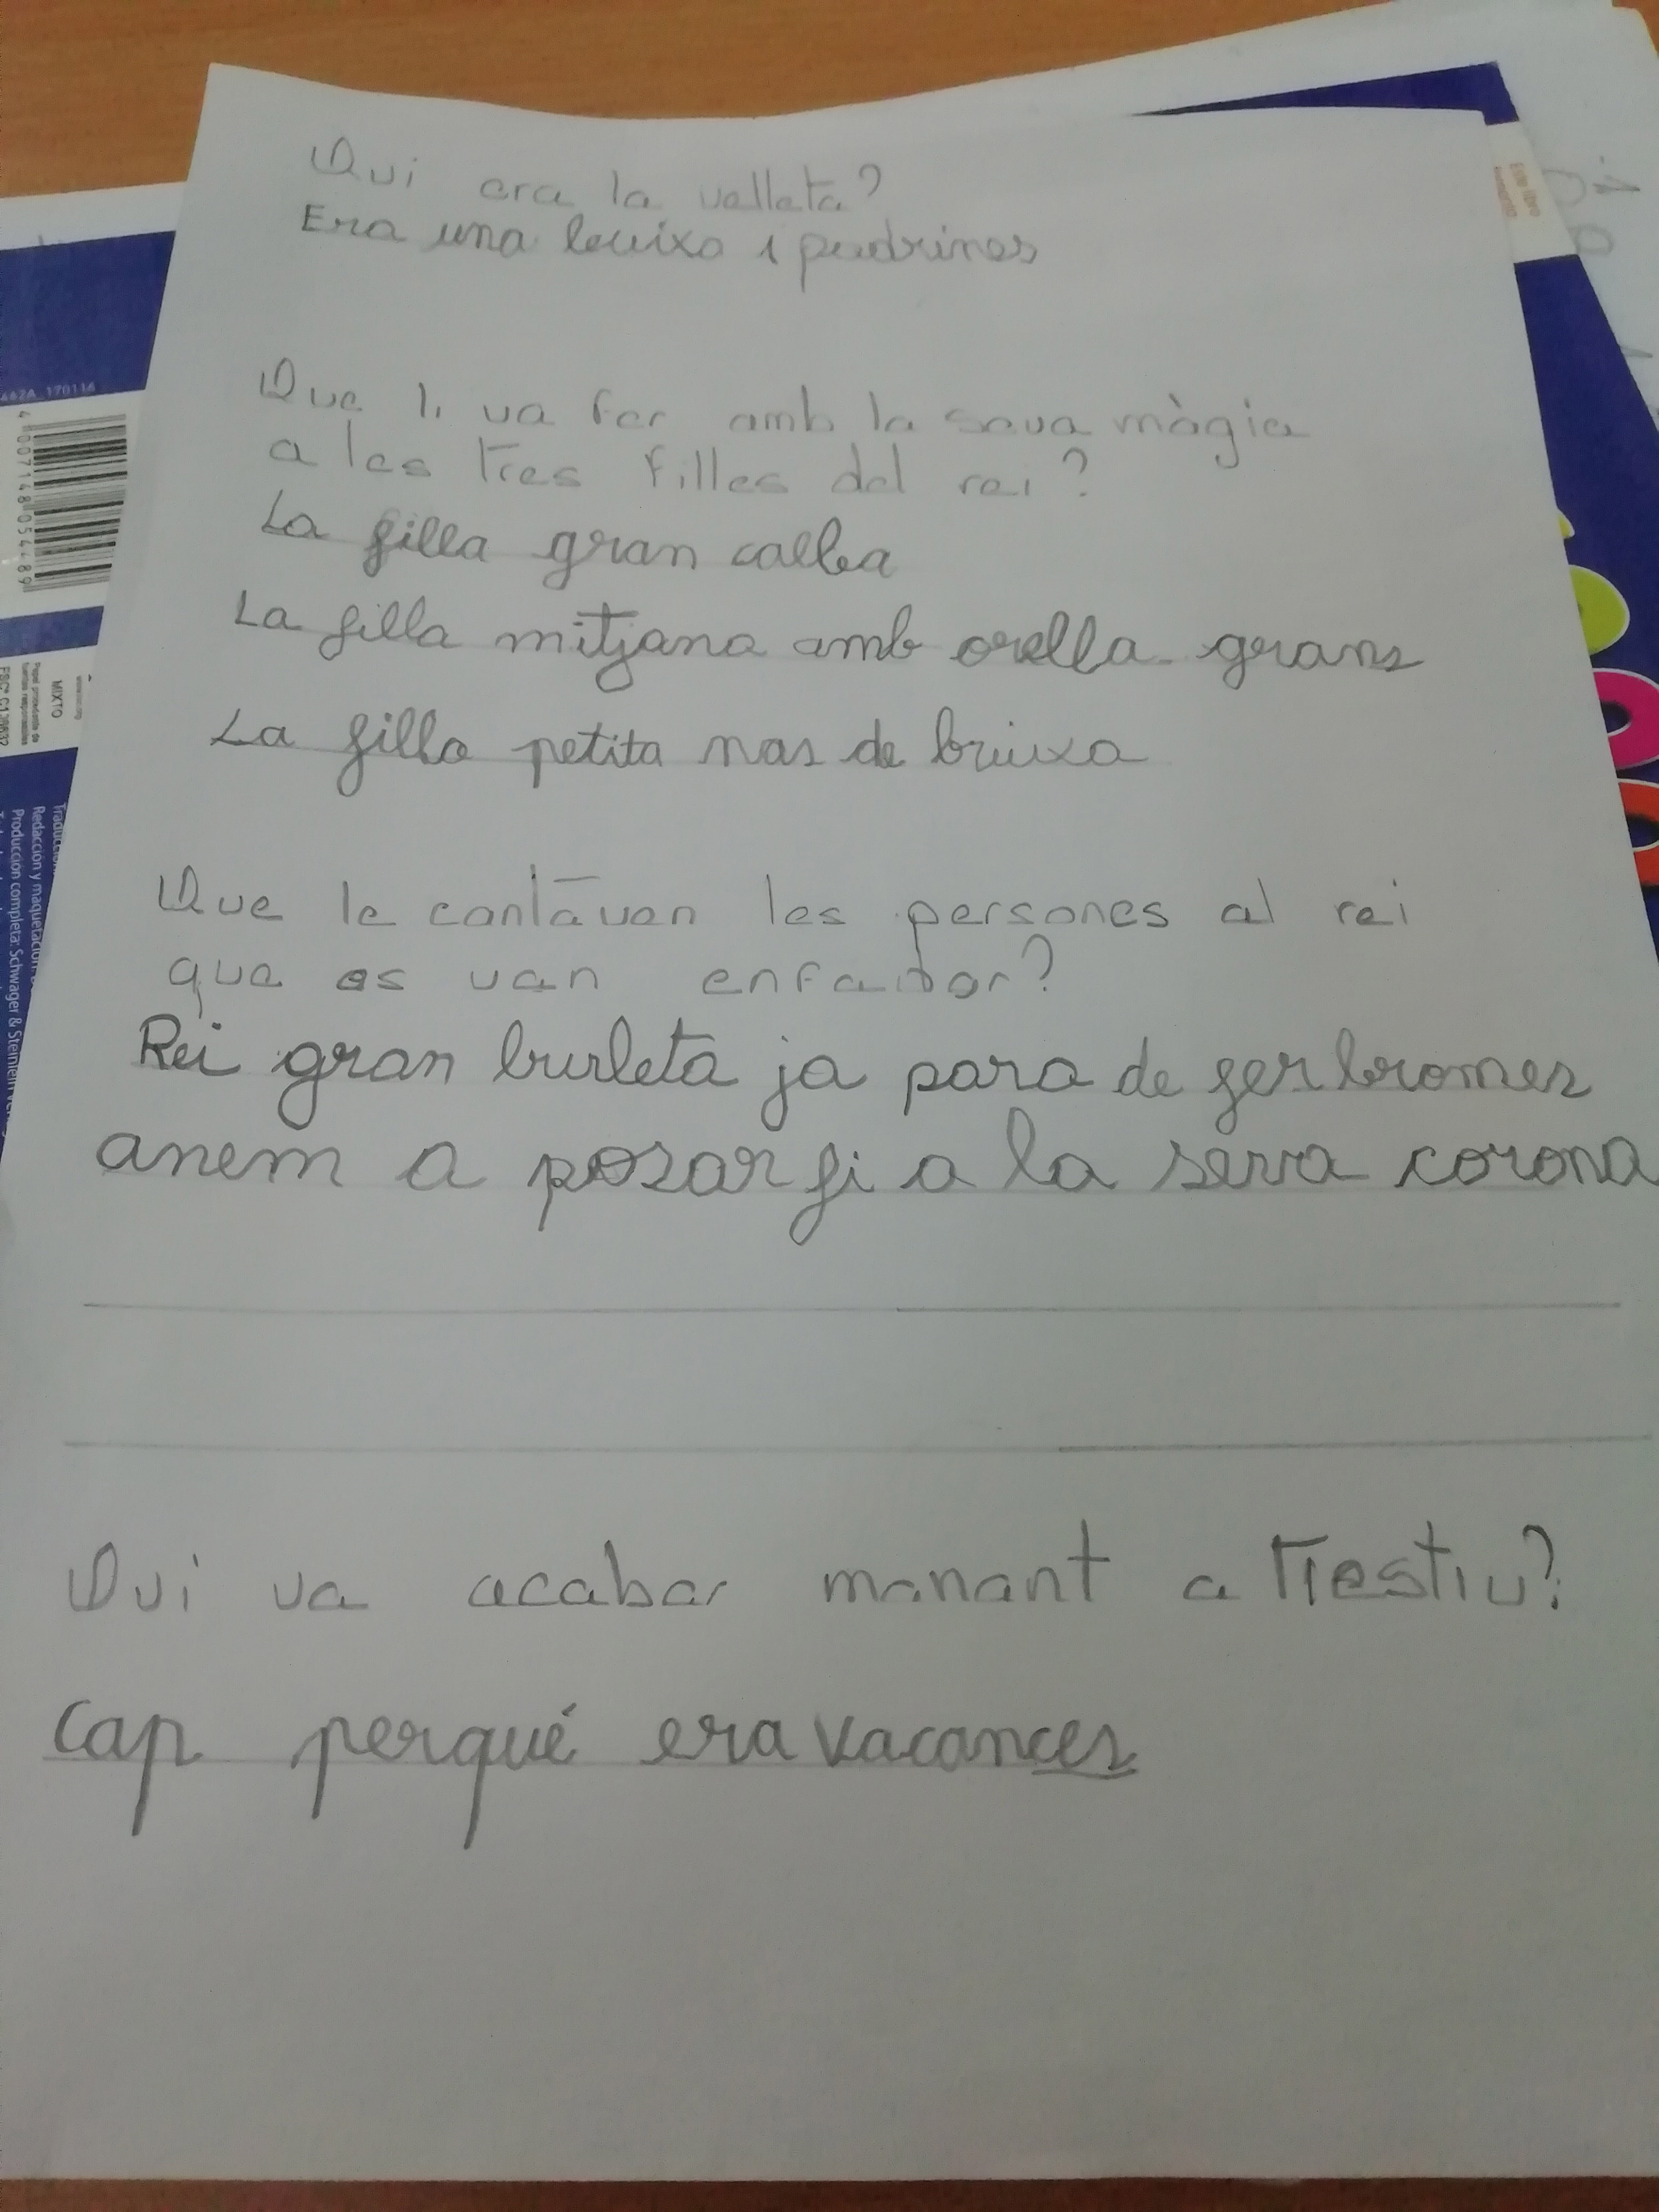 Qui era la velleta?
Era una bruixa i padrines
Que li va fer amb la seva màgia
a les tres filles del rei?
La filla gran calba
La filla mitjana amb orella grans
La filla petita nas de bruixa
Que le cantāven les persones al rei
que es van enfadar?
Rei gran burleta ja para de fer bromes
anem a posar fi a la seva corona
Qui va acabar manant a Triestiu?
Cap perqué era vacances
462A_170114
4 007148 054489
MIXTO
Redacción y maquetación:
Producción completa: Schwager & Steinlein